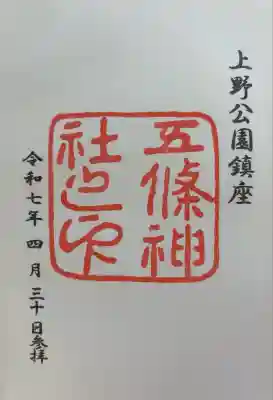 上野公園鎮座
五條神
社之印
令和七年 四月 三十日参拝